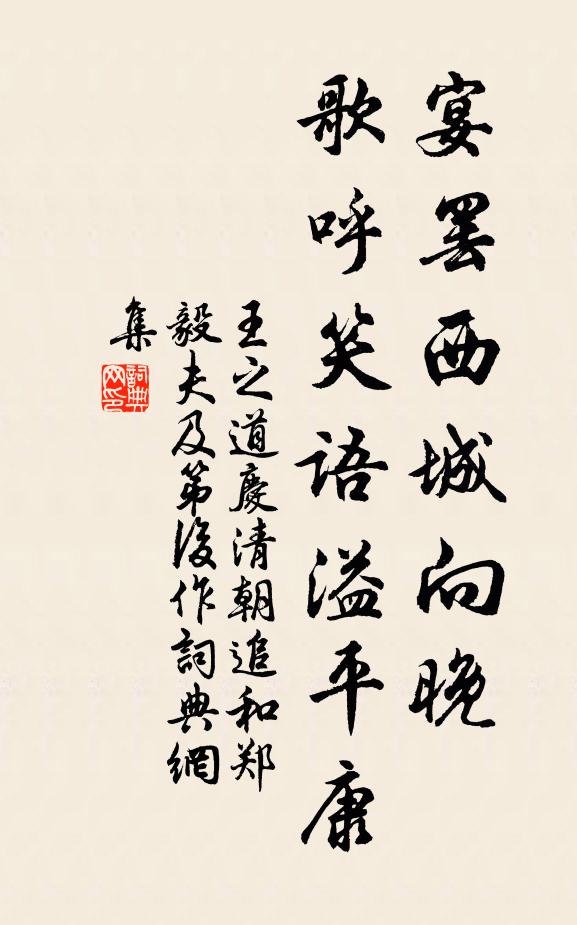 宴罢西城向晚
歌呼笑語溢平康
王之道慶清朝追和郑
毅夫及第後作詞典網
集
詞典
网印